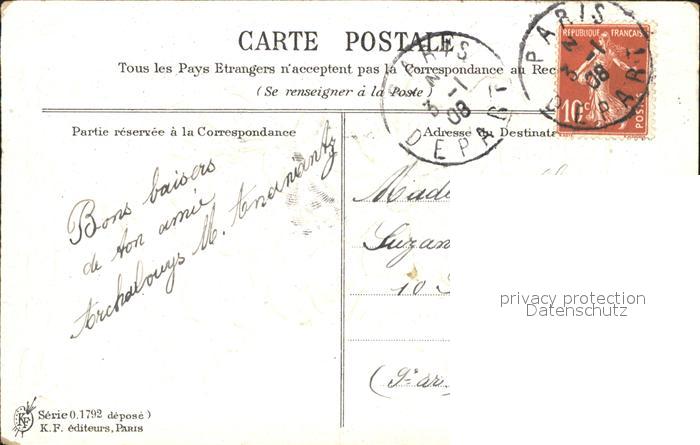 CARTE POSTALE
Tous les Pays Etrangers n'acceptent pas la Correspondance au Rec
(Se renseigner à la Poste)
PARIS DEPART
3 -1
08
PARIS DEPART
3 -1
08
REPUBLIQUE FRANÇAISE
10c
POSTES
Partie réservée à la Correspondance
Bons baisers
de ton amie
Archalouys M.
Adresse du Destinat
Made
Suzan
10
(9e ar
privacy protection
Datenschutz
KF
Série 0.1792 déposé)
K.F. éditeurs, PARIS